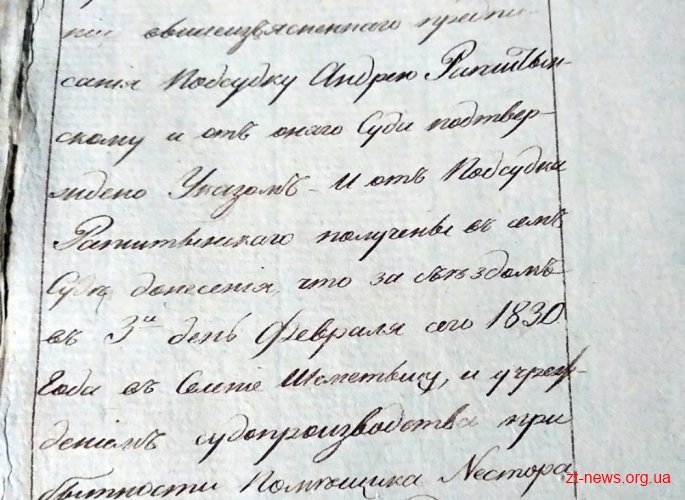 нии вышеизъясненнаго предпи-
санія Подсудку Андрею
скому и отъ онаго Суда подтвер-
ждено Указомъ - И отъ Подсудка
полученъ въ семъ
Судѣ донесенія, что за съѣздомъ
въ 3й день Февраля сего 1830
Года въ Селѣніе и учреж-
деніемъ судопроизводства при
бытности Помѣщика Нестора
zt-news.org.ua